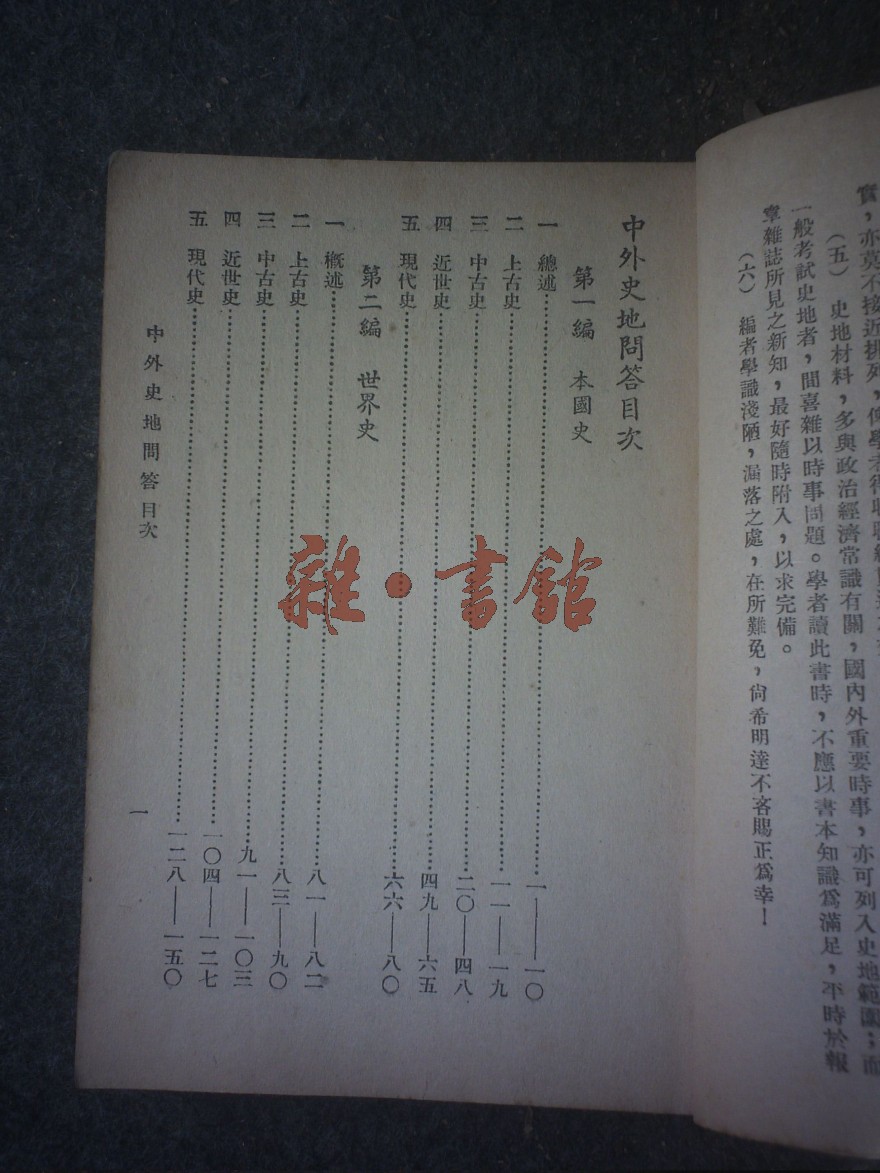 實，亦莫不接近排列，俾學者得
（五）　史地材料，多與政治經濟常識有關，國內外重要時事，亦可列入史地範圍；而
一般考試史地者，間喜雜以時事問題。學者讀此書時，不應以書本知識爲滿足，平時於報
章雜誌所見之新知，最好隨時附入，以求完備。
（六）　編者學識淺陋，漏落之處，在所難免，尙希明達不吝賜正爲幸！
中外史地問答目次
第一編　本國史
一　總述……一——一〇
二　上古史……一一——一九
三　中古史……二〇——四八
四　近世史……四九——六五
五　現代史……六六——八〇
第二編　世界史
一　概述……八一——八二
二　上古史……八三——九〇
三　中古史……九一——一〇三
四　近世史……一〇四——一二七
五　現代史……一二八——一五〇
中外史地問答目次
一
雜·書館